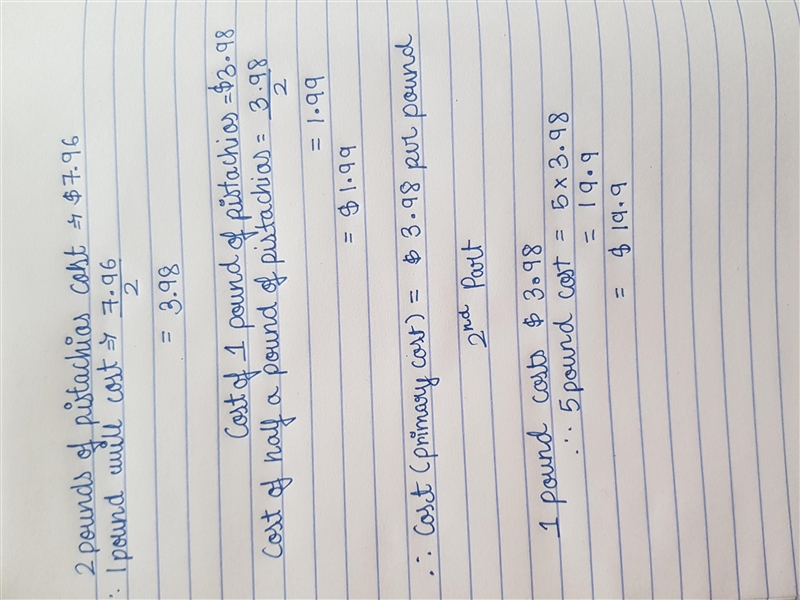 2 pounds of pistachias cost → $ 7.96
∴ 1 pound will cost → 7.96
2
= 3.98
Cost of 1 pound of pistachias = $3.98
Cost of half a pound of pistachias = 3.98
2
= 1.99
= $ 1.99
∴ Cost (primary cost) = $ 3.98 per pound
2nd Part
1 pound costs $ 3.98
∴ 5 pound cost = 5 x 3.98
= 19.9
= $ 19.9